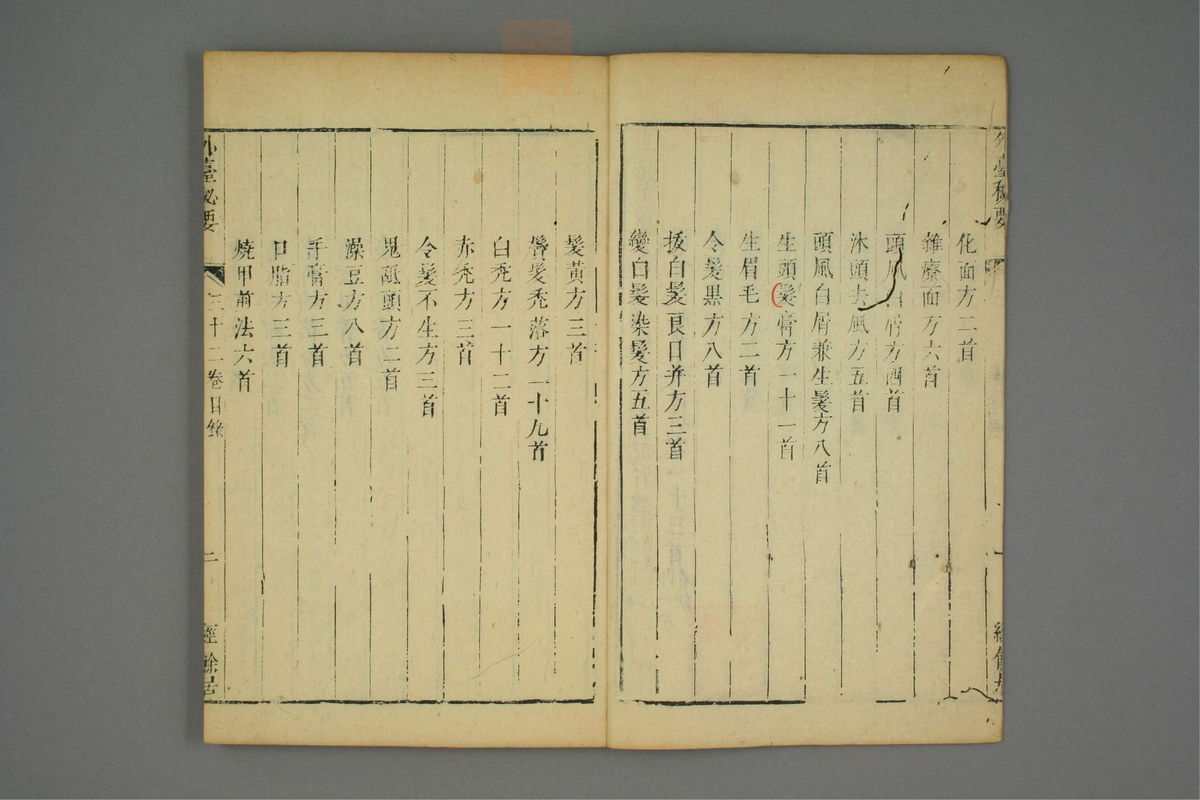 外臺秘要
一
化面方二首
雜療面方六首
頭風白屑方四首
沐頭去風方五首
頭風白屑兼生髮方八首
生頭髮膏方一十一首
生眉毛方二首
令髮黑方八首
拔白髮良日并方三首
變白髮染髮方五首
髮黃方三首
鬢髮禿落方一十九首
白禿方一十二首
赤禿方三首
令髮不生方三首
鬼舐頭方二首
澡豆方八首
手膏方三首
口脂方三首
燒甲煎法六首
外臺秘要
三十二卷目錄
二
經餘居